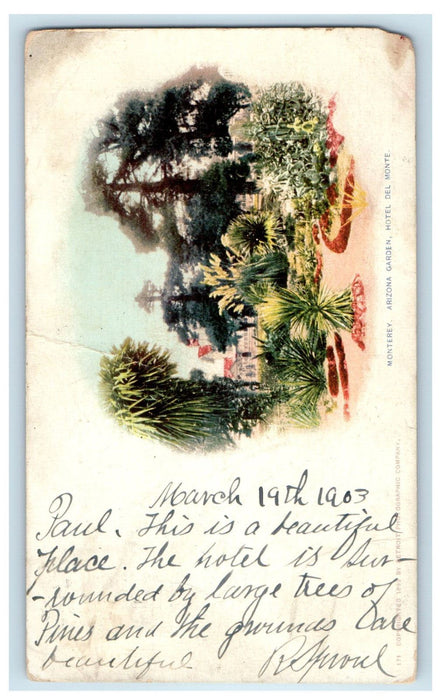 MONTEREY. ARIZONA GARDEN, HOTEL DEL MONTE.
March 19th 1903
Paul. This is a beautiful
place. The hotel is sur-
-rounded by large trees of
Pines and the grounds are
beautiful.
COPYRIGHTED BY DETROIT PHOTOGRAPHIC COMPANY.